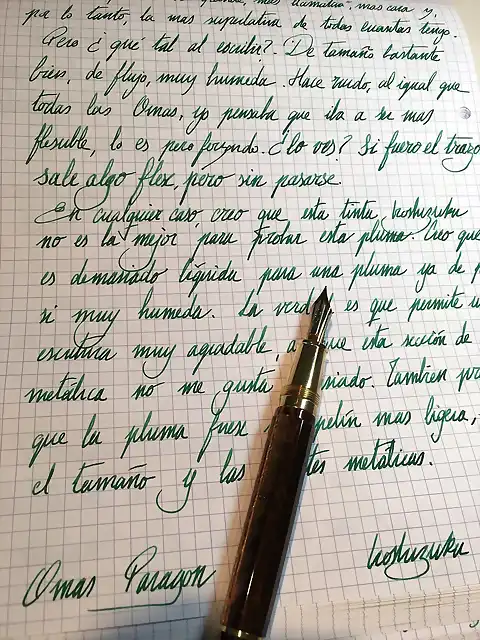 más cara y,
por lo tanto, la mas superlativa de todas cuantas tengo.
Pero ¿qué tal al escribir? De tamaño bastante
bien, de flujo, muy húmeda. Hace ruido, al igual que
todas las Omas, yo pensaba que iba a ser mas
flexible, lo es pero forzando. ¿lo ves? Si fuero el trazo
sale algo flex, pero sin pasarse.
En cualquier caso, creo que esta tinta, koshuzuku
no es la mejor para probar esta pluma. Creo que
es demasiado líquida para una pluma ya de p
si muy humeda. La verd es que permite u
escritura muy agradable, a que esta sección de
metálica no me gusta siado. Tambien pr
que la pluma fuese pelín mas ligera,
el tamaño y las tes metálicas.
Omas Paragon
koshuzuku